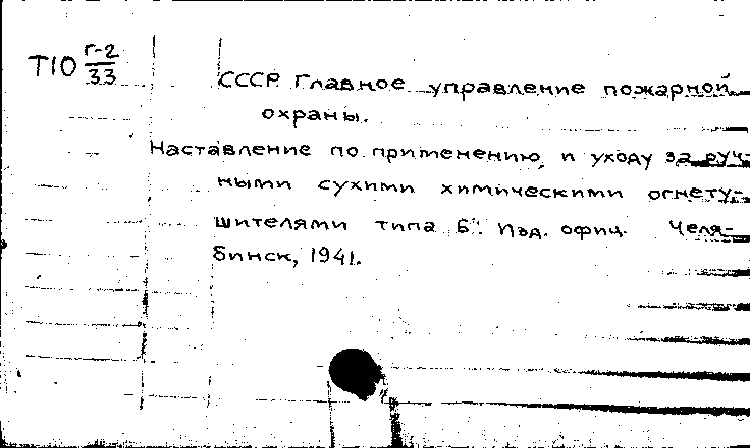 Т10 Г-2/33
СССР Главное управление пожарной
охраны.
Наставление по применению и уходу за руч-
ными сухими химическими огнету-
шителями типа Б". Изд. офиц. Челя-
бинск, 1941.